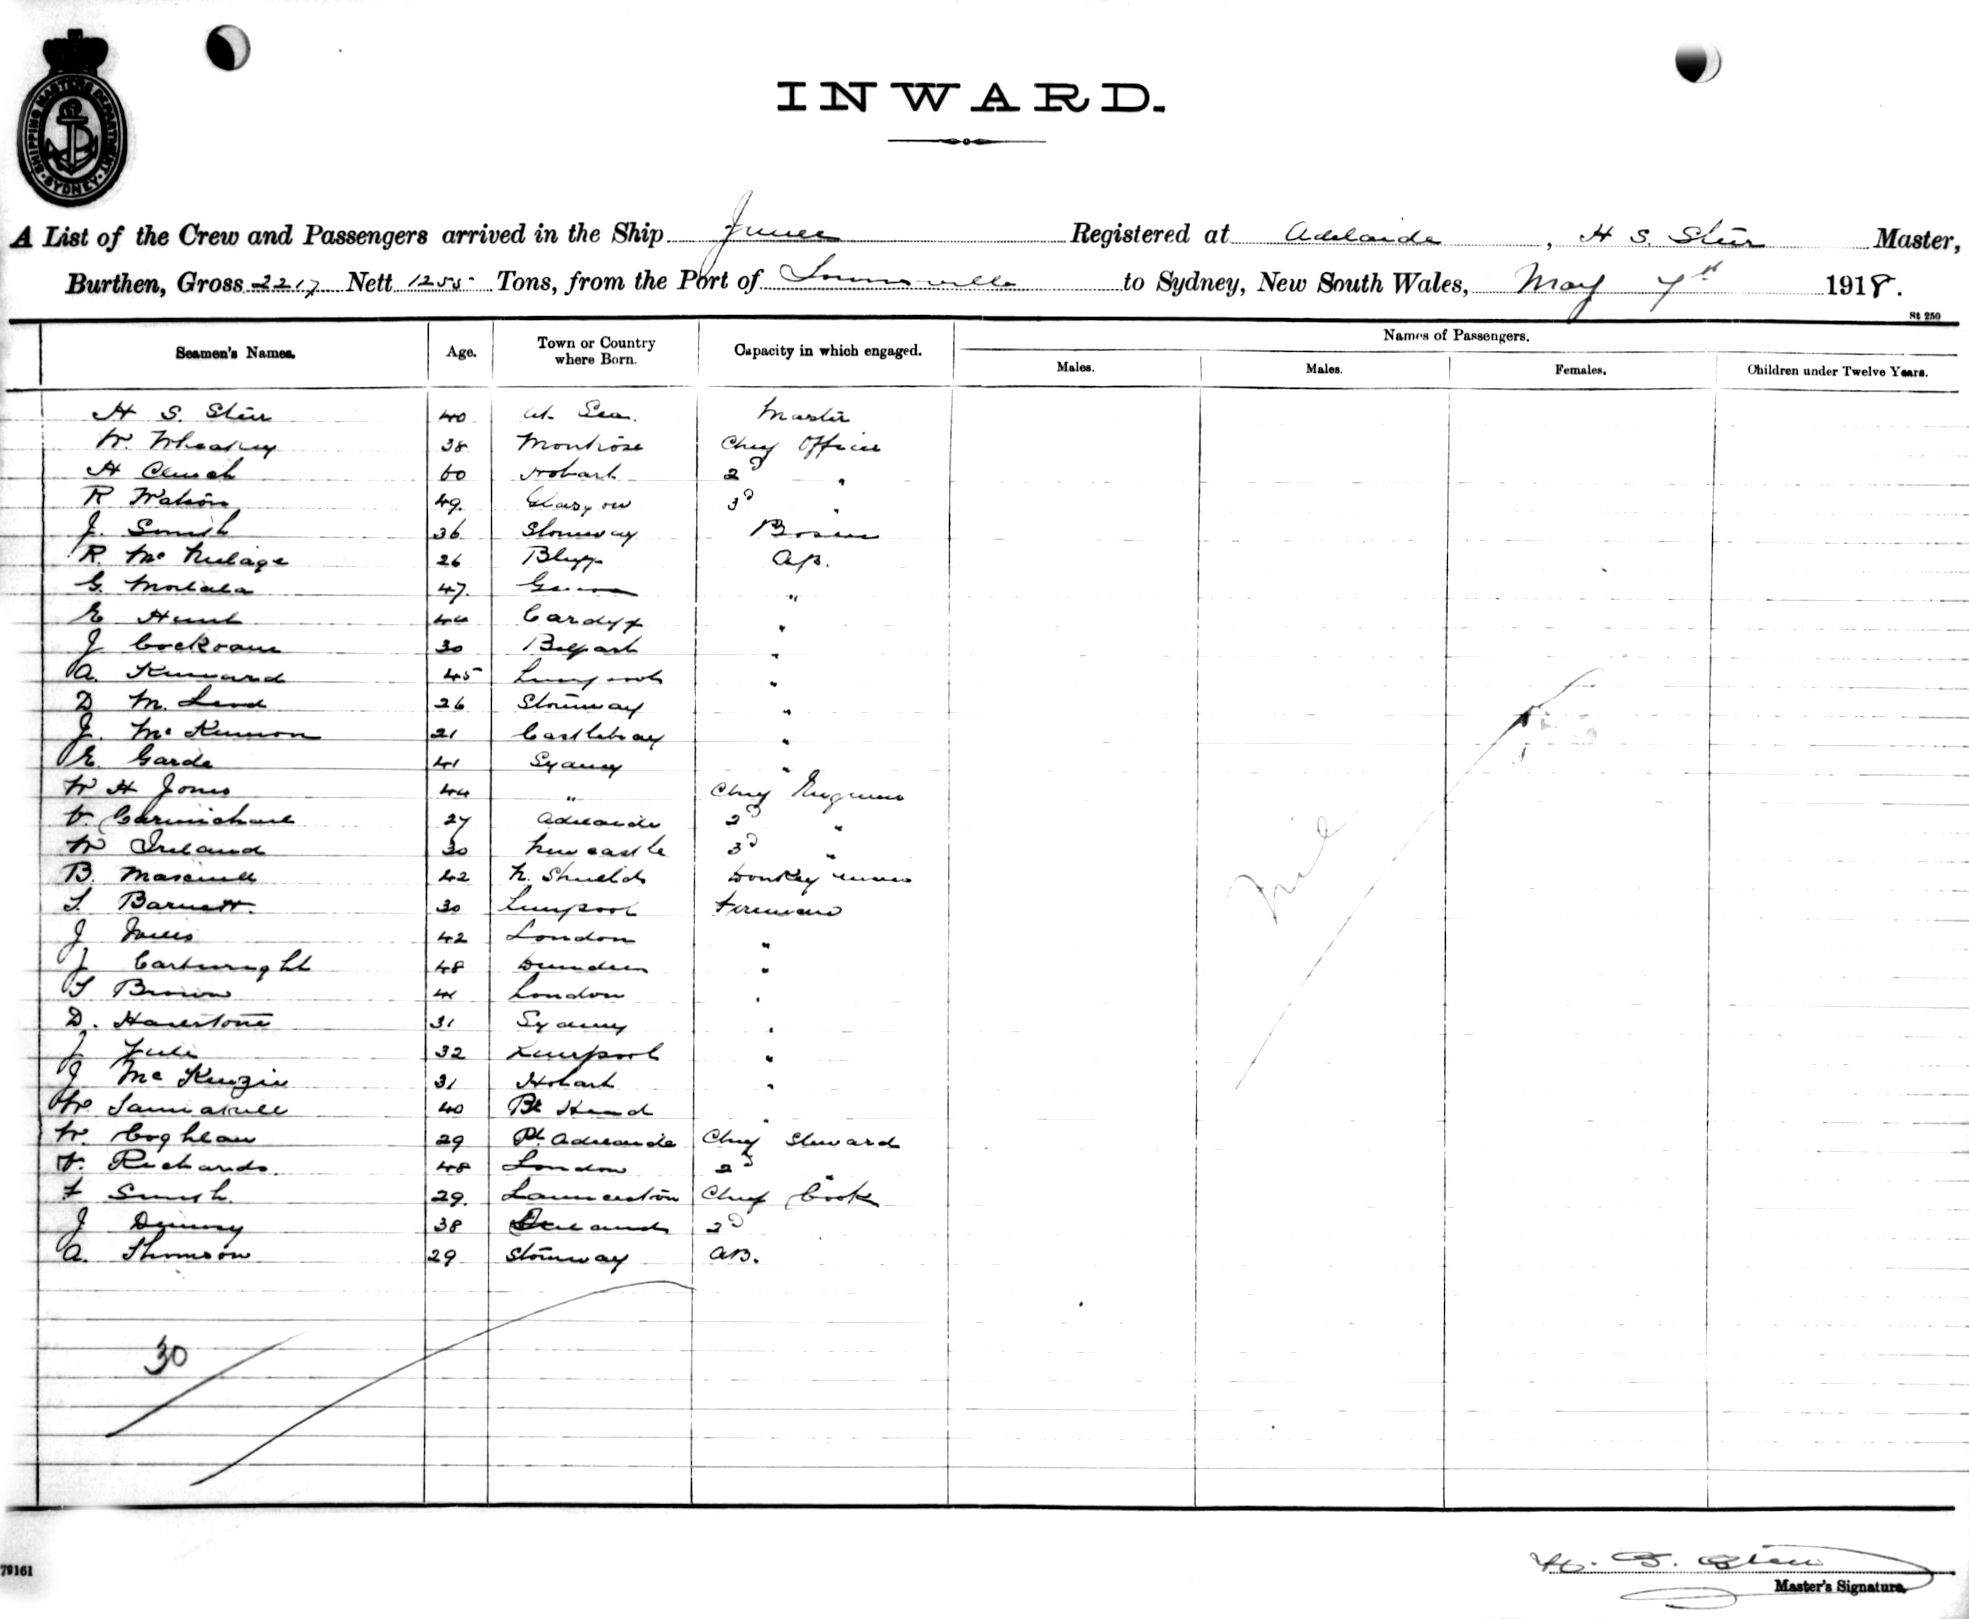 SHIPPING MASTERS DEPARTMENT SYDNEY
INWARD.
A List of the Crew and Passengers arrived in the Ship Junee Registered at Adelaide, H S. Master,
Burthen, Gross 2217 Nett 1255 Tons, from the Port of Townsville to Sydney, New South Wales, May 7th 1918.
St 250
Seamen's Names. Age. Town or Country where Born. Capacity in which engaged. Names of Passengers.
Males. Males. Females. Children under Twelve Years.
H S. 40 At Sea. Master
W. 38 Montrose Chief Officer
H 60 Hobart 2d "
R Watson 49. Glasgow 3d "
J. Smith 36 Stornoway Bosun
R. Mc 26 Bluff AB.
G. 47. "
E Hunt 44 Cardiff "
J Cockrane 30 Belfast "
A. 45 Liverpool "
D M. Leod 26 Stornoway "
J. Mc Kinnon 21 Castlebay "
E. Garde 41 Sydney "
W H Jones 44 " Chief Engineer
V. Carmichael 27 Adelaide 2d "
W Ireland 30 Newcastle 3d "
B. Maxwell 42 N. Shields Donkey
S. Barnett. 30 Liverpool Fireman
J 42 London "
J Cartwright 48 Dundee "
S Brown 41 London "
D. Hailstone 31 Sydney "
J Yule 32 Liverpool "
J Mc Kenzie 31 Hobart "
W. 40 "
W. Coghlan 29 Pt. Adelaide Chief Steward
V. Richards. 48 London 2d "
F Smith. 29. Launceston Chief Cook
J 38 2d
A. Thomson 29 Stornoway AB.
Nil
30
79161
H. S.
Master's Signature.